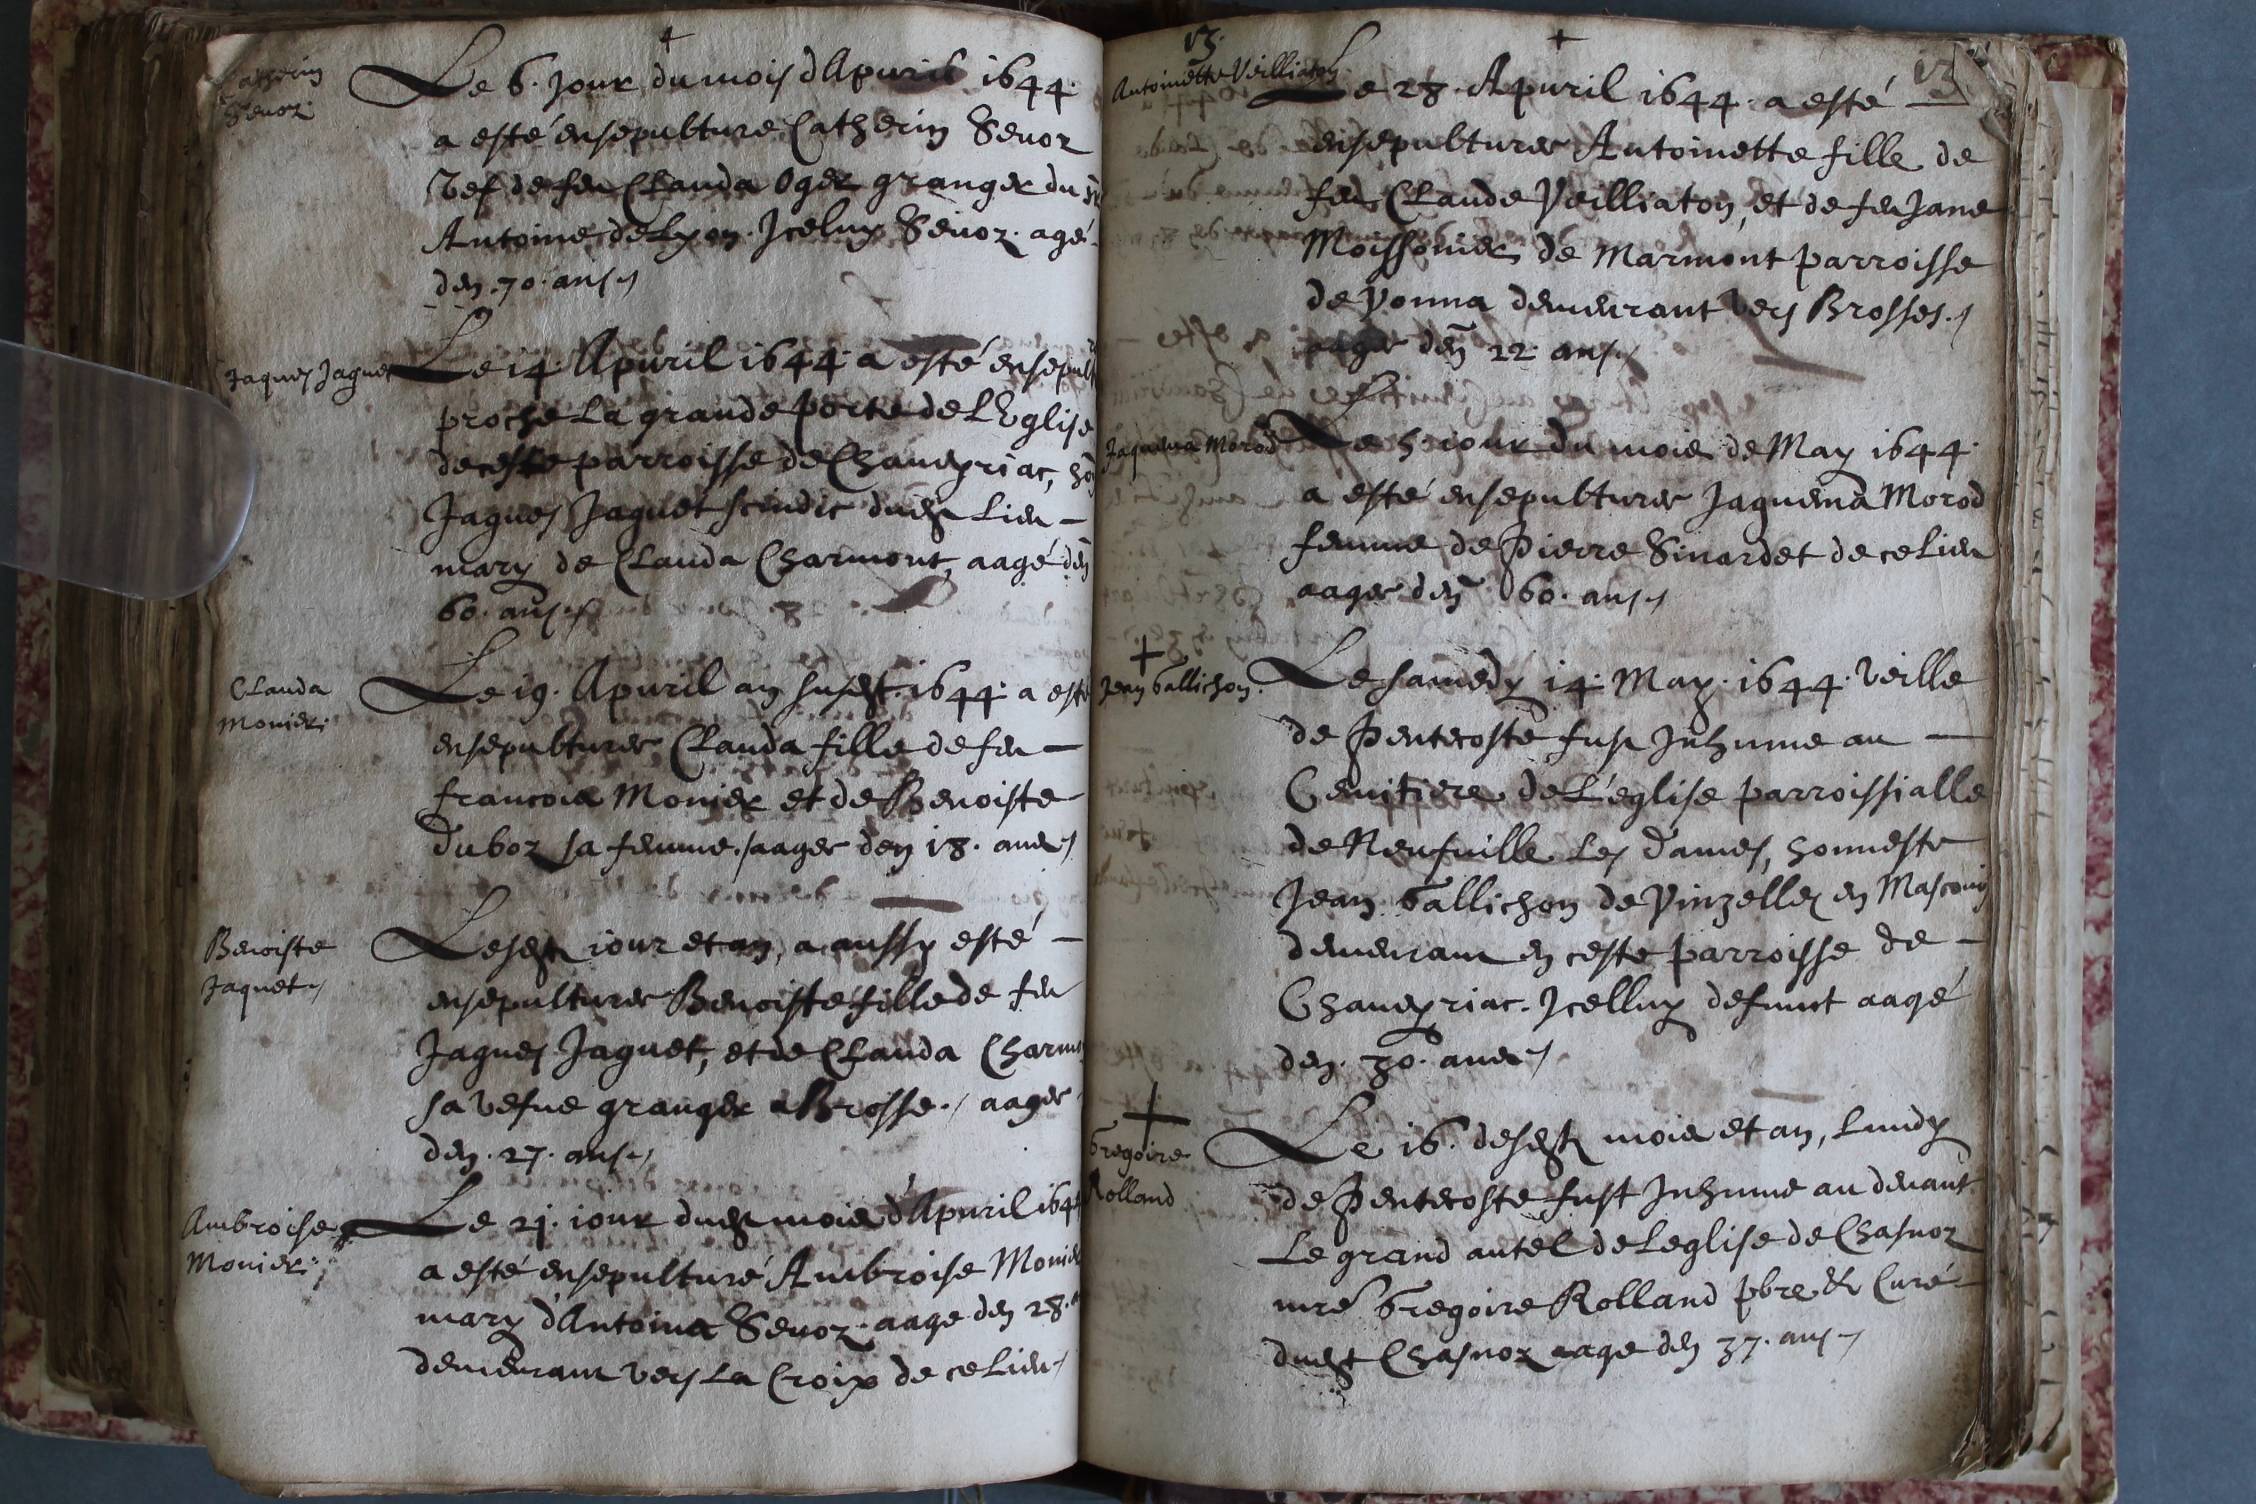 Catherin
Sevoz.
Le 6. Jour du mois d'Apuril 1644.
a esté ensepulturé Catherin Sevoz
Vef de feu Clauda Oger granger du Sr
Antoine de Lyon. Iceluy Sevoz. agé
den. 70. ans
Jaques Jaquet
Le 14. Apuril 1644. a esté ensepult
proche la grande porte de l'Eglise
de ceste parroisse de Chaueyriac, ho
Jaques Jaquet scindic dudt lieu
mary de Clauda Charmont, aagé den
60. ans
Clauda
Monier.
Le 19. Apuril an susdt. 1644. a esté
ensepulturee Clauda fille de feu
francois Monier et de Benoiste
Duboz sa femme. aagee den 18. ans
Benoiste
Jaquet
Lesdt jour et an, a aussy esté
ensepulturee Benoiste fille de feu
Jaques Jaquet, et de Clauda Charmo
sa vefue granger a Brosse. aagee
den. 27. ans
Ambroise
Monier.
Le 21. jour dudt mois d'Apuril 1644
a esté ensepulturé Ambroise Monier
mary d'Antoina Sevoz. aagé den 28.
demeurant vers la Croix de ce lieu
13.
13
Antoinette Veilliaton
Le 28. Apuril 1644. a esté
ensepulturee Antoinette fille de
feu Claude Veilliaton, et de feu Jane
Moissonier de Marmont parroisse
de Vonna demeurant vers Brosses.
aagee den 22. ans
Jaquema Morod
Le 5. jour du mois de May 1644.
a esté ensepulturee Jaquema Morod
femme de Pierre Sinardet de ce lieu
aagee den 60. ans
Jean Gallichon.
Le samedy 14. May. 1644. veille
de Pentecoste fust Inhume au
Cemitiere de l'eglise parroissialle
de Neufuille les Dames, honneste
Jean Gallichon de Vinzelles en Masconn
demeurant en ceste parroisse de
Chaueyriac. Icelluy defunct aagé
den. 30. ans
Gregoire
Rolland
Le 16. desdt mois et an, lundy
de Pentecoste fust Inhume au deuant
le grand autel de leglise de Chasnoz
mre Gregoire Rolland pbre & Curé
dudt Chasnoz aagé den 37. ans